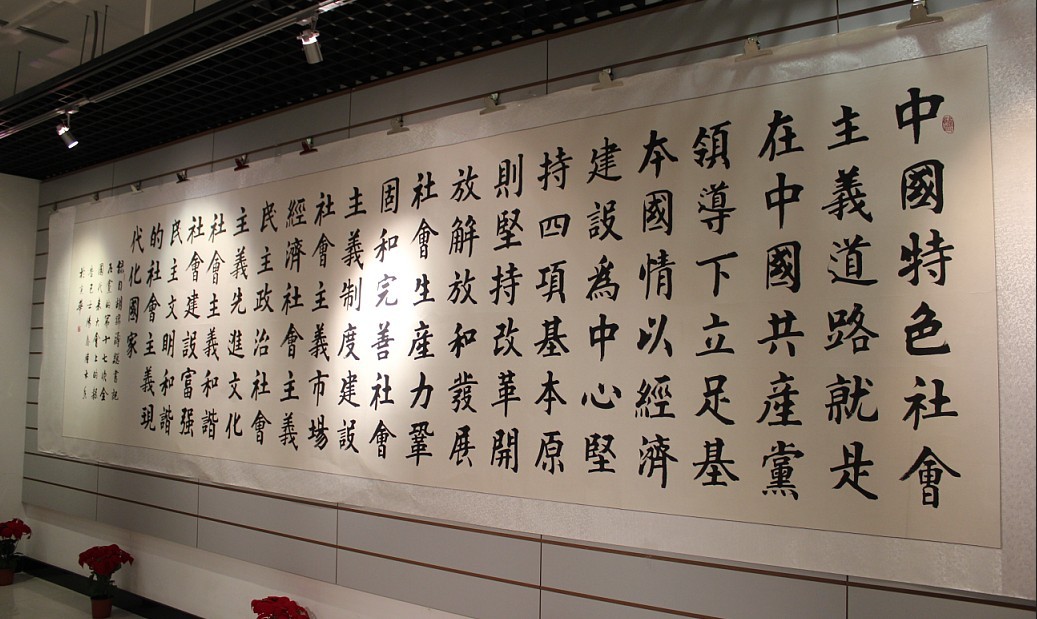 中國特色社會
主義道路就是
在中國共産黨
領導下立足基
本國情以經濟
建設爲中心堅
持四項基本原
則堅持改革開
放解放和發展
社會生産力鞏
固和完善社會
主義制度建設
社會主義市場
經濟社會主義
民主政治社會
主義先進文化
社會主義和諧
社會建設富强
民主文明和諧
的社會主義現
代化國家